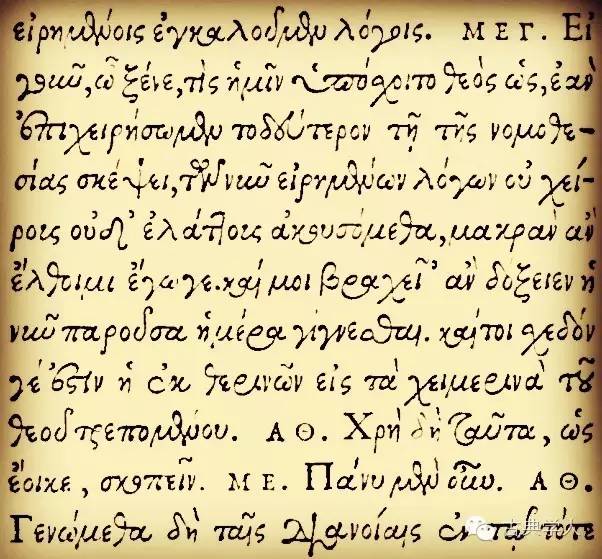 εἰρημένοις ἐγκαλοῦμεν λόγοις. ΜΕΓ. Εἰ
γοῦν, ὦ ξένε, τὶς ἡμῖν ὑπόσχοιτο θεὸς ὡς, ἐὰν
ἐπιχειρήσωμεν τοδεύτερον τῇ τῆς νομοθε-
σίας σκέψει, τῶν νῦν εἰρημένων λόγων οὐ χεί-
ρους οὐδ' ἐλάττους ἀκουσόμεθα, μακρὰν ἂν
ἔλθοιμι ἔγωγε. καί μοι βραχεῖ' ἂν δόξειεν ἡ
νῦν παροῦσα ἡμέρα γίγνεσθαι. καίτοι σχεδόν
γέ ἐστιν ἡ ἐκ θερινῶν εἰς τὰ χειμερινὰ τοῦ
θεοῦ τρεπομένου. ΑΘ. Χρὴ δὴ ταῦτα, ὡς
ἔοικε, σκοπεῖν. ΜΕ. Πάνυ μὲν οὖν. ΑΘ.
Γενώμεθα δὴ ταῖς διανοίαις ἐν τῷ τότε
古典学人